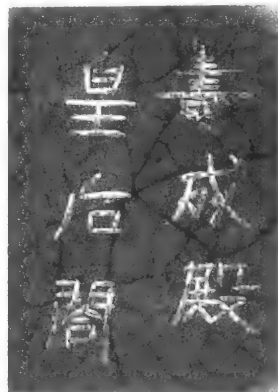 壽成殿
皇后閤